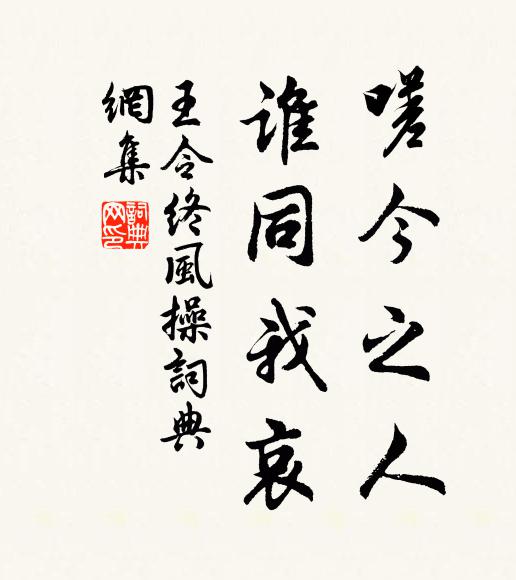 嗟今之人
誰同我哀
王令終風操詞典
網集
詞典
网印